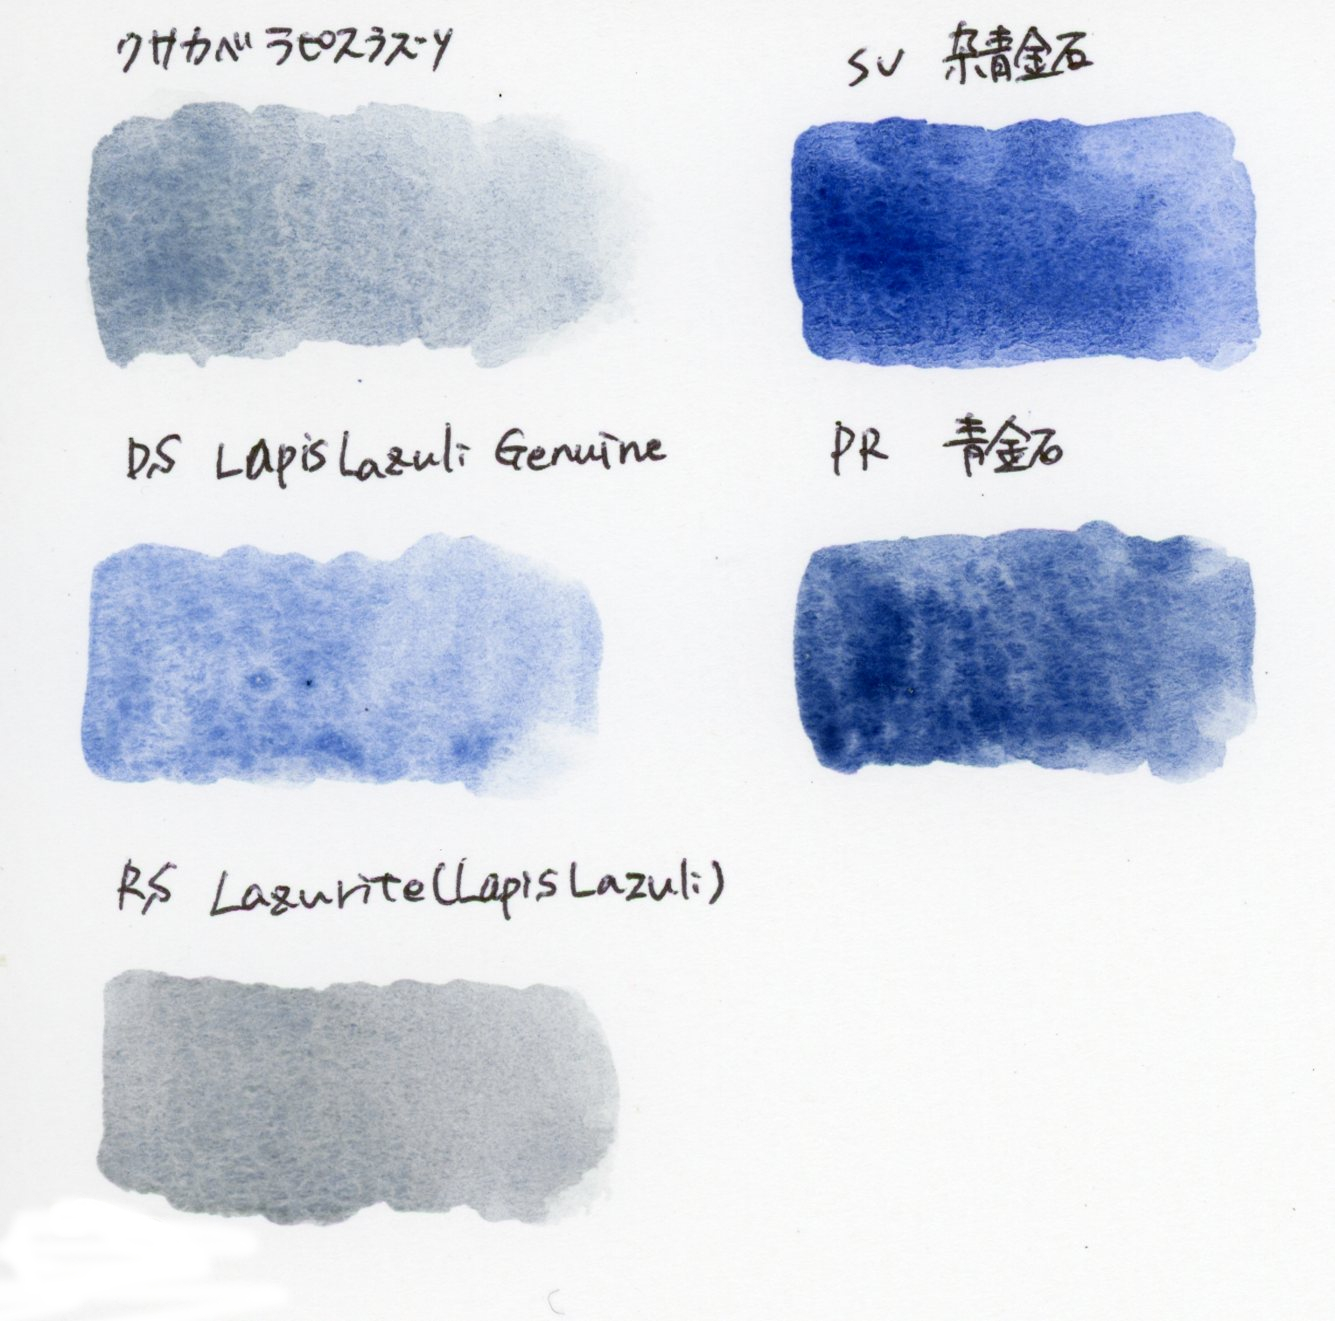 クサカベ ラピスラズーリ
SV 杂青金石
D,S Lapis Lazuli Genuine
PR 青金石
R,S Lazurite(Lapis Lazuli)